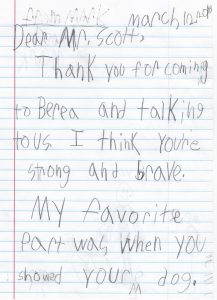 from Mark
March 12, 2018
Dear Mr. Scott,
Thank you for coming
to Berea and talking
to us I think you're
strong and brave.
My favorite
part was, when you
showed your dog.